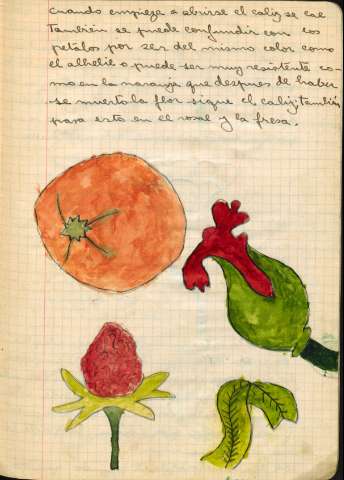 cuando empieza a abrirse el caliz se cae
También se puede confundir con los
petalos por ser del mismo color como
el alhelie o puede ser muy resistente co-
mo en la naranja que despues de haber
se muerto la flor sigue el caliz; también
para esto en el rosal y la fresa.